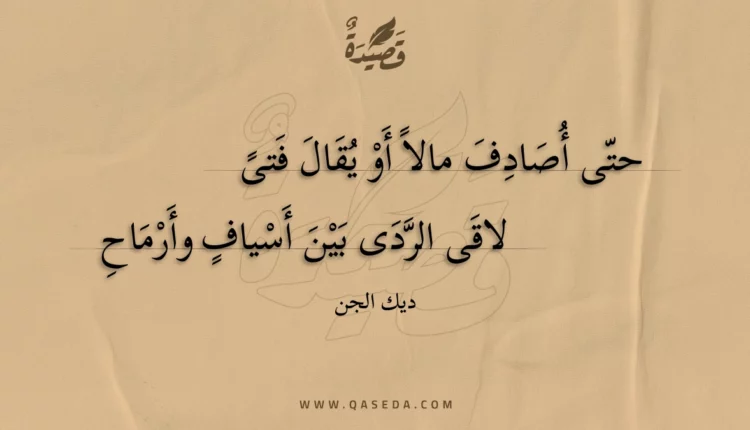 قَصِيدَةٌ
حتّى أُصَادِفَ مالاً أَوْ يُقَالَ فَتىً
لاقَى الرَّدَى بَيْنَ أَسْيافٍ وأَرْمَاحِ
ديك الجن
WWW.QASEDA.COM